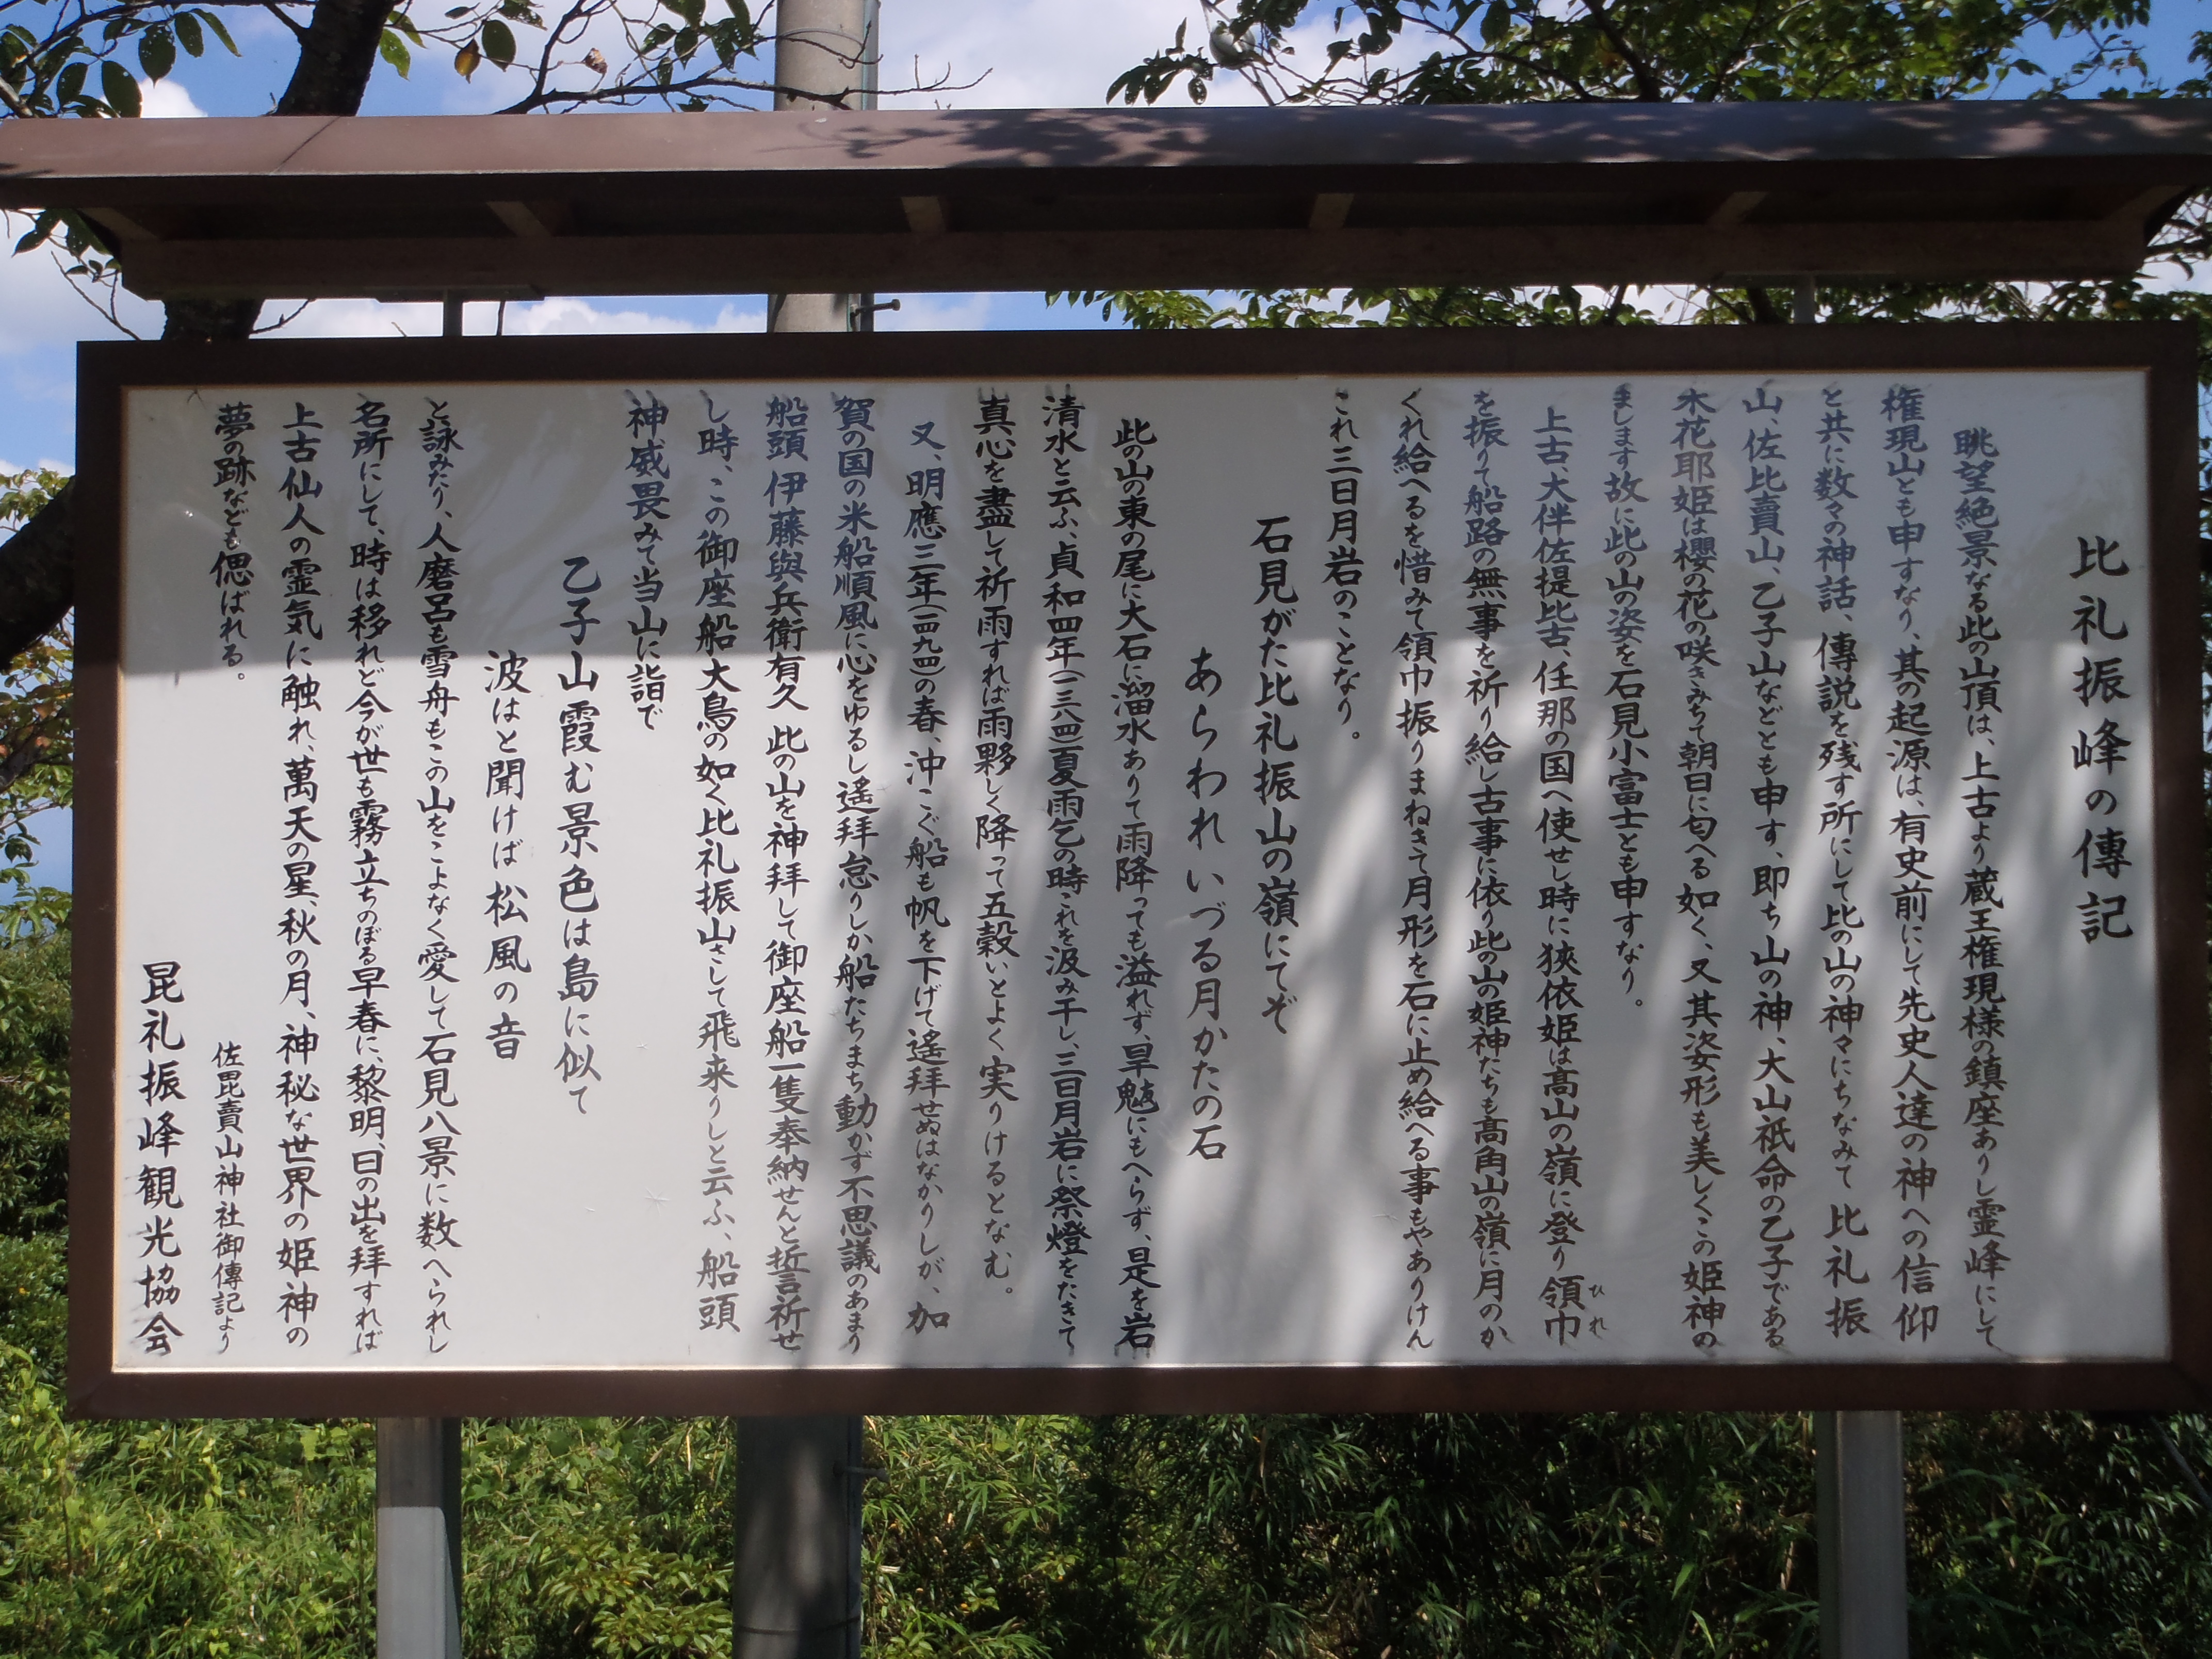 比礼振峰の傳記
眺望絶景なる此の山頂は、上古より蔵王権現様の鎮座ありし霊峰にして
権現山とも申すなり、其の起源は、有史前にして先史人達の神への信仰
と共に数々の神話、傳説を残す所にして比の山の神々にちなみて比礼振
山、佐比賣山、乙子山などとも申す、即ち山の神、大山祇命の乙子である
木花耶姫は櫻の花の咲きみちて朝日に匂へる如く、又其姿形も美しくこの姫神の
まします故に此の山の姿を石見小富士とも申すなり。
上古、大伴佐提比古、任那の国へ使せし時に狭依姫は髙山の嶺に登り領巾
ひれ
を振りて船路の無事を祈り給し古事に依り此の山の姫神たちも髙角山の嶺に月のか
くれ給へるを惜みて領巾振りまねきて月形を石に止め給へる事もやありけん
これ三日月岩のことなり。
石見がた比礼振山の嶺にてぞ
あらわれいづる月かたの石
此の山の東の尾に大石に溜水ありて雨降っても溢れず、旱魃にもへらず、是を岩
清水と云ふ、貞和四年(一三八四)夏雨乞の時これを汲み干し、三日月岩に祭燈をたきて
真心を盡して祈雨すれば雨夥しく降って五穀いとよく実りけるとなむ。
又、明應三年(一四九四)の春、沖こぐ船も帆を下げて遙拜せぬはなかりしが、加
賀の国の米船順風に心をゆるし遙拜怠りしか船たちまち動かず不思議のあまり
船頭伊藤與兵衛有久此の山を神拜して御座船一隻奉納せんと誓言祈せ
し時、この御座船大鳥の如く比礼振山さして飛来りしと云ふ、船頭
神威畏みて当山に詣で
乙子山霞む景色は島に似て
波はと聞けば松風の音
と詠みたり、人磨呂も雪舟もこの山をこよなく愛して石見八景に数へられし
名所にして、時は移れど今が世も霧立ちのぼる早春に、黎明、日の出を拜すれば
上古仙人の霊気に触れ、萬天の星、秋の月、神秘な世界の姫神の
夢の跡なども偲ばれる。
佐毘賣山神社御傳記より
昆礼振峰観光協会